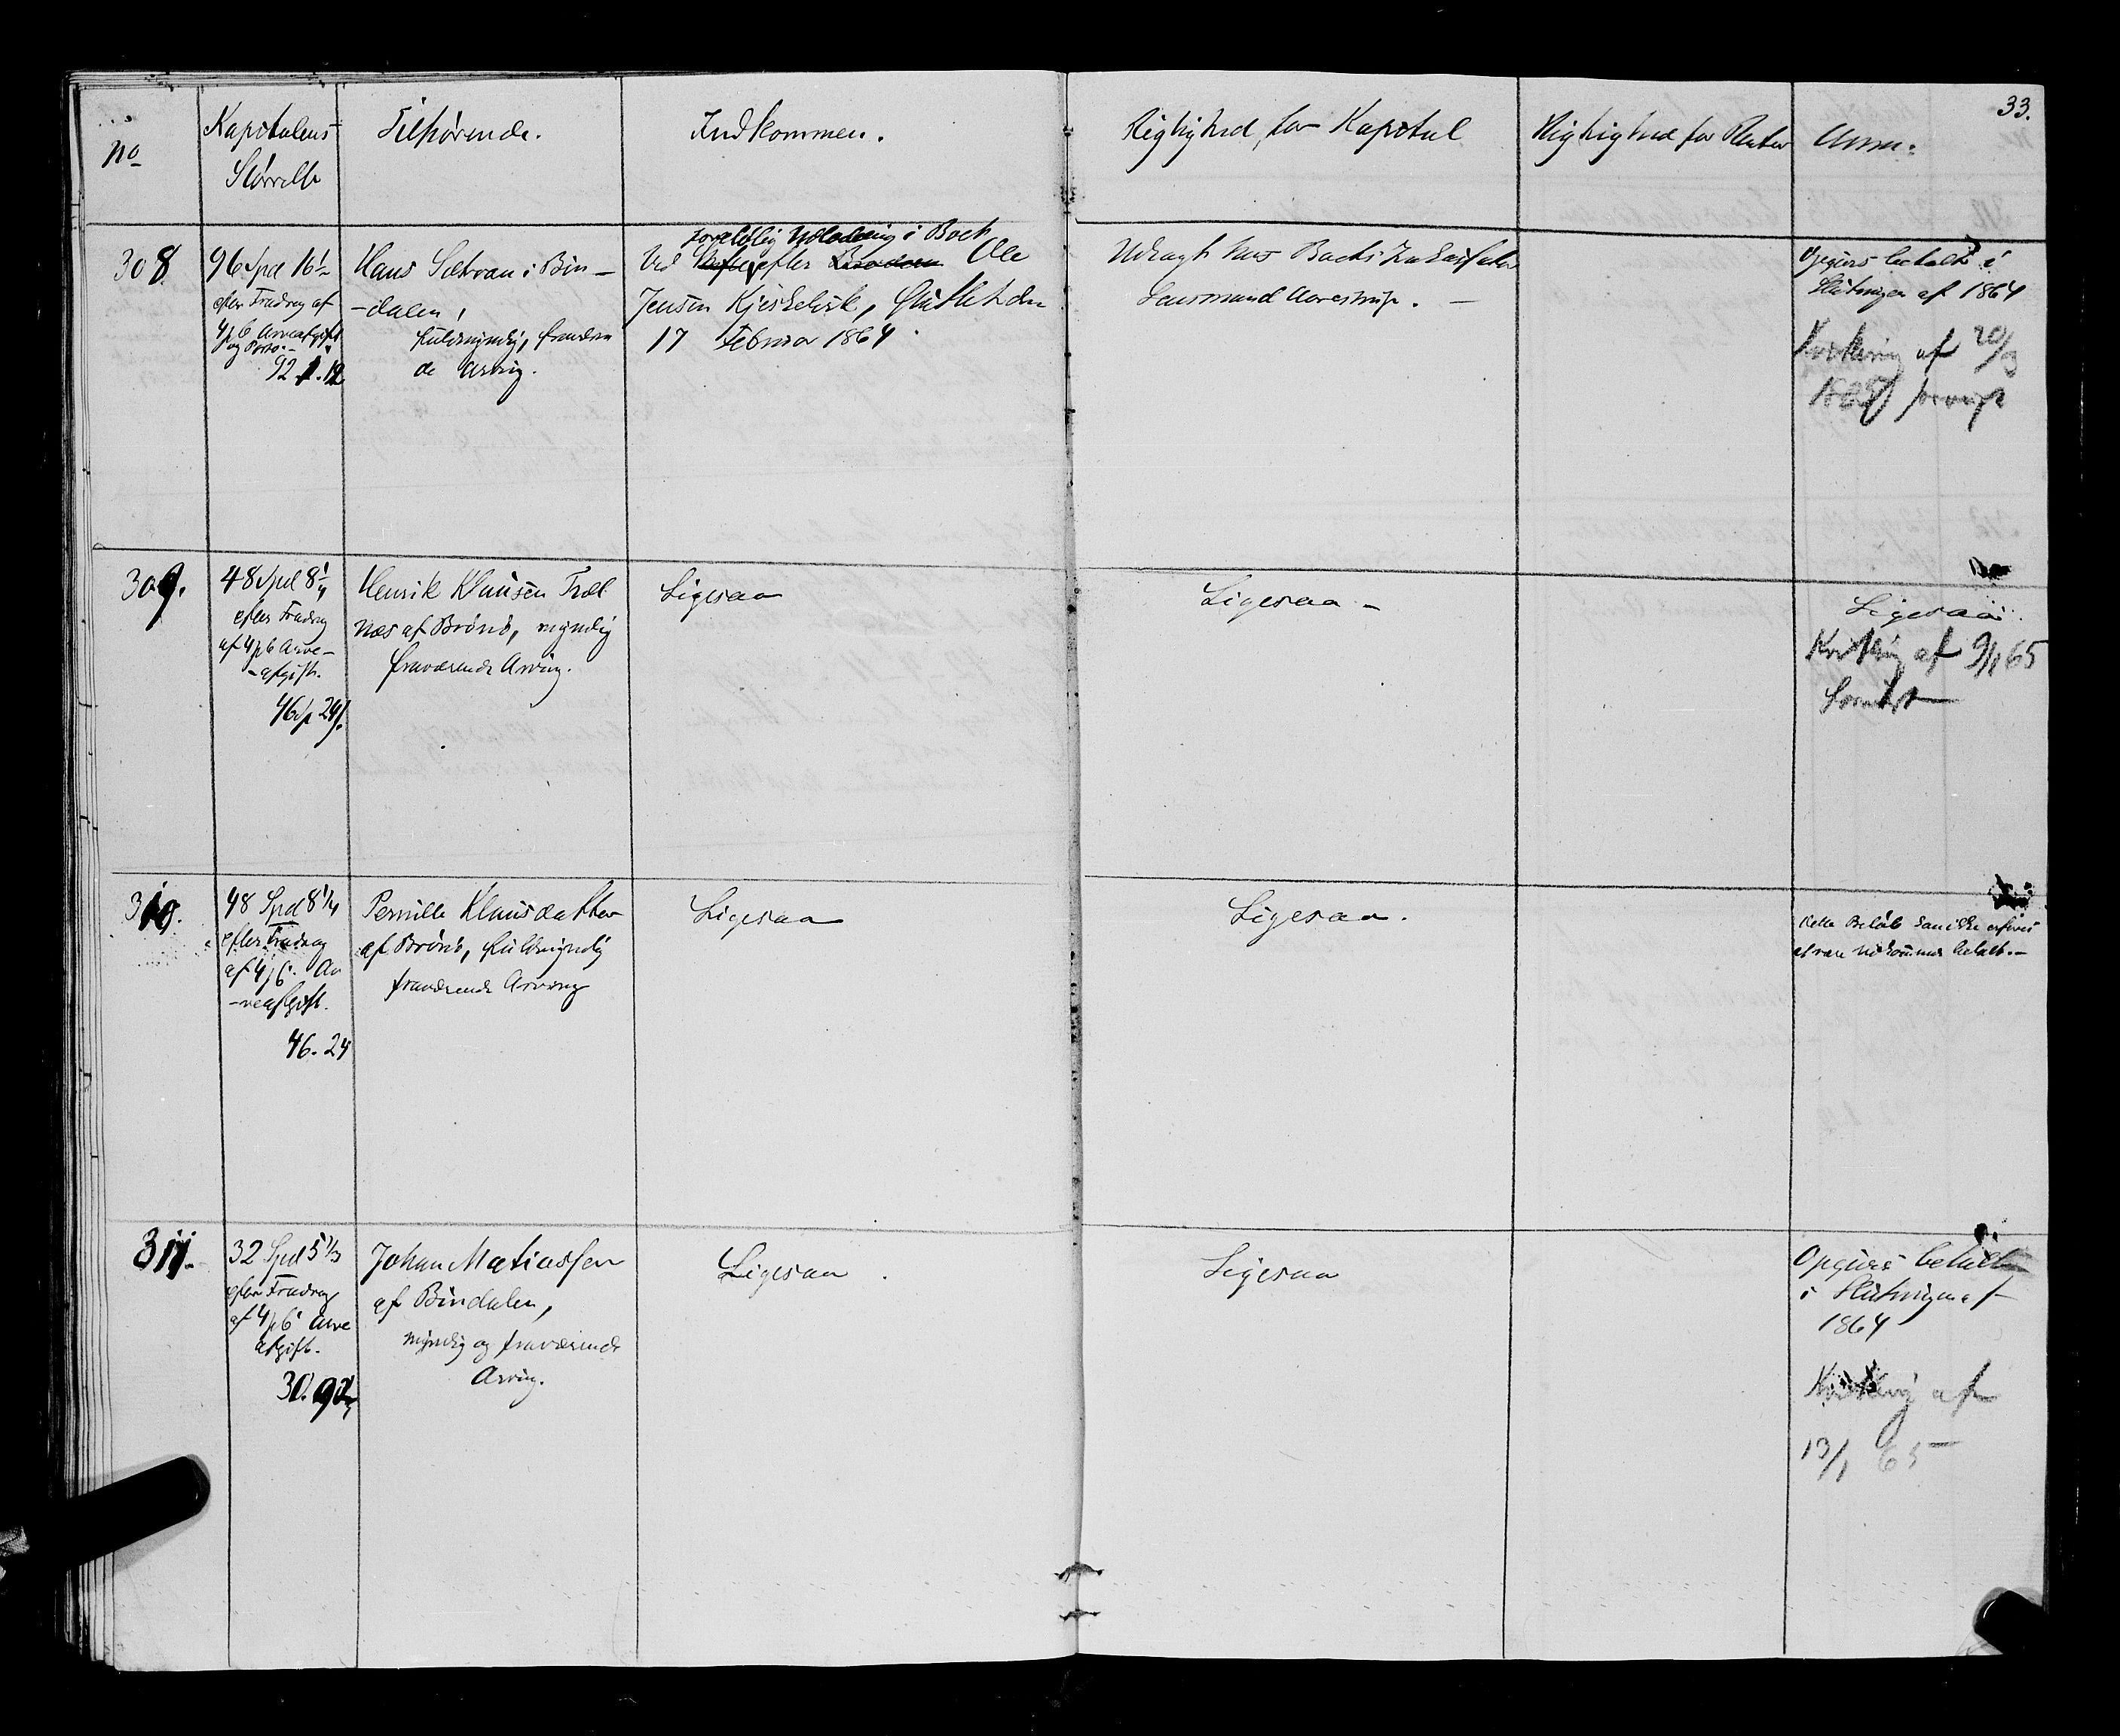 33.
No
Kapitalens
Størrelse
Tilhørende.
Indkommen.
Rigtighed for Kapital
Rigtighed for Renter
Anm.
308.
96 Spd 16½
efter Fradrag af
4 p C Arveafgift
og Porto.-
92. 1. 12
Hans Sætran i Bin-
-dalen,
fuldmyndig, fraværen
de Arving.
foreløbig Udlodning i Boet
Ved Skifte efter Ole
Jensen Kjeskelvik, sluttet den
17 Februar 1864.
Udragt hos Boets Inkassator
Lensmand Aarestrup. -
Opgives betalt i
Slutningen af 1864
Kvittering af 20/3
forevist
309.
48 Spd 8¼
efter Fradrag
af 4 p C Arve-
-afgift.
46 sp 24 s.
Henrik Klausen Træl
næs af Brønø, myndig
fraværende Arving.
Ligesaa
Ligesaa -
Ligesaa.
Kvittering af 9/1 65
forevist
310.
48 Spd 8¼
efter Fradrag
af 4 p C. Ar
-veafgift.
46. 24
Pernille Klausdatter
af Brønø, fuldmyndig
fraværende Arving
Ligesaa
Ligesaa.
Dette Beløb kan ikke erfares
at være vedkommende betalt. -
311.
32 Spd 5⅓
efter Fradrag
af 4 p C Arve
afgift.
30. 92
Johan Matiassen
af Bindalen,
myndig og fraværende
Arving.
Ligesaa.
Ligesaa
Opgives betalt
i Slutningen af
1864
Kvittering af
13/1 65